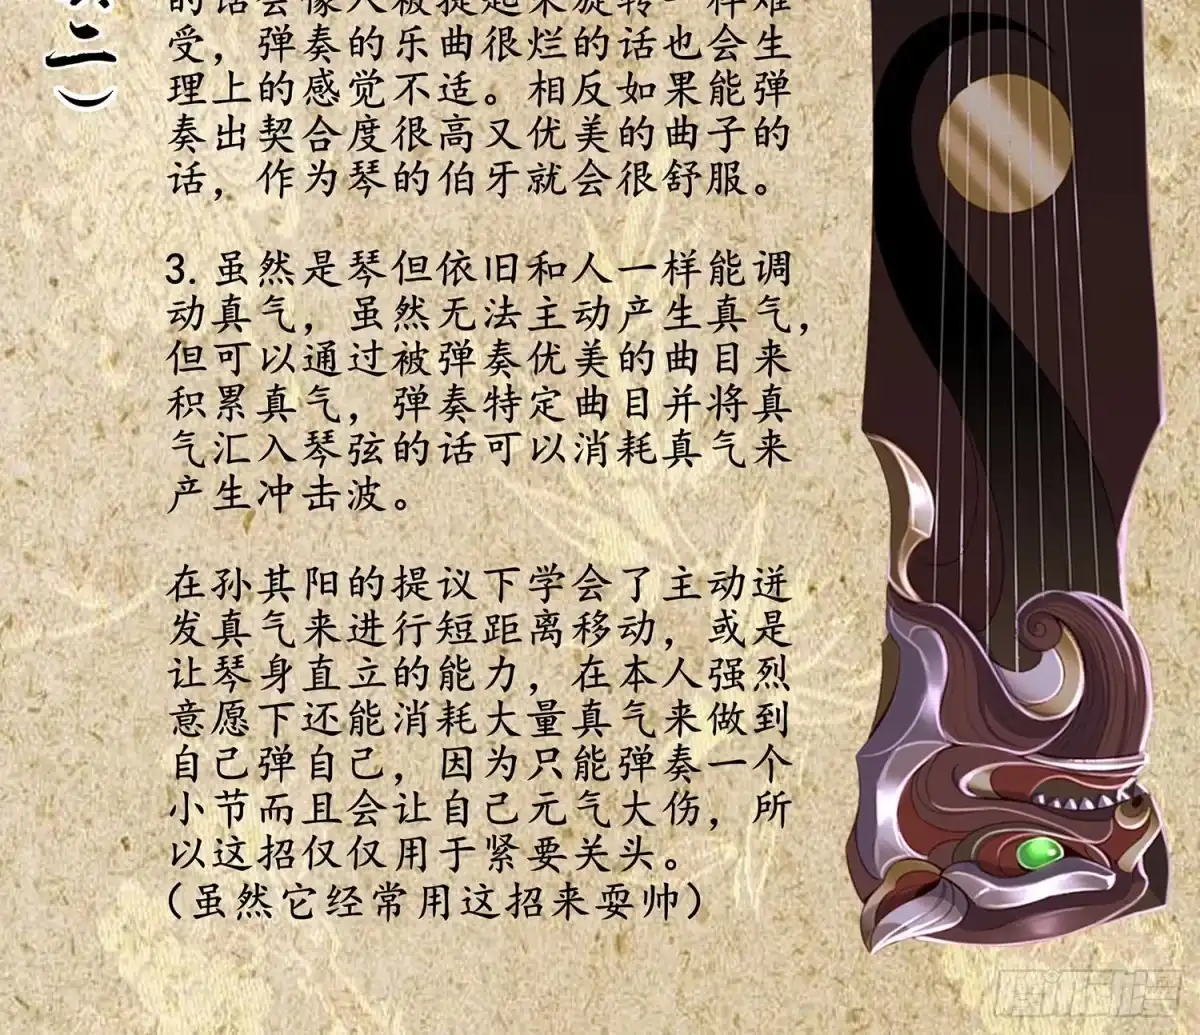 二）
的话会像人被提起来旋转一样难
受，弹奏的乐曲很烂的话也会生
理上的感觉不适。相反如果能弹
奏出契合度很高又优美的曲子的
话，作为琴的伯牙就会很舒服。
3. 虽然是琴但依旧和人一样能调
动真气，虽然无法主动产生真气，
但可以通过被弹奏优美的曲目来
积累真气，弹奏特定曲目并将真
气汇入琴弦的话可以消耗真气来
产生冲击波。
在孙其阳的提议下学会了主动迸
发真气来进行短距离移动，或是
让琴身直立的能力，在本人强烈
意愿下还能消耗大量真气来做到
自己弹自己，因为只能弹奏一个
小节而且会让自己元气大伤，所
以这招仅仅用于紧要关头。
（虽然它经常用这招来耍帅）